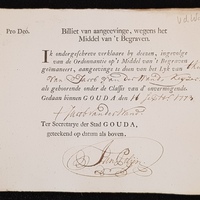 V.d.W
Pro Deo. Billiet van aangeevinge, wegens het
Middel van 't Begraven.
Ik ondergeschreve verklaare by deesen, ingevolge
van de Ordonnantie op 't Middel van 't Begraven
geëmaneert, aangevinge te doen van het Lyk van
Van Jacob van der Wand
als gehoorende onder de Classis van d' onvermogende.
Gedaan binnen GOUDA, den 16
Jacob van der Wand
Ter Secretarye der Stad GOUDA,
geteekent op datum als boven.